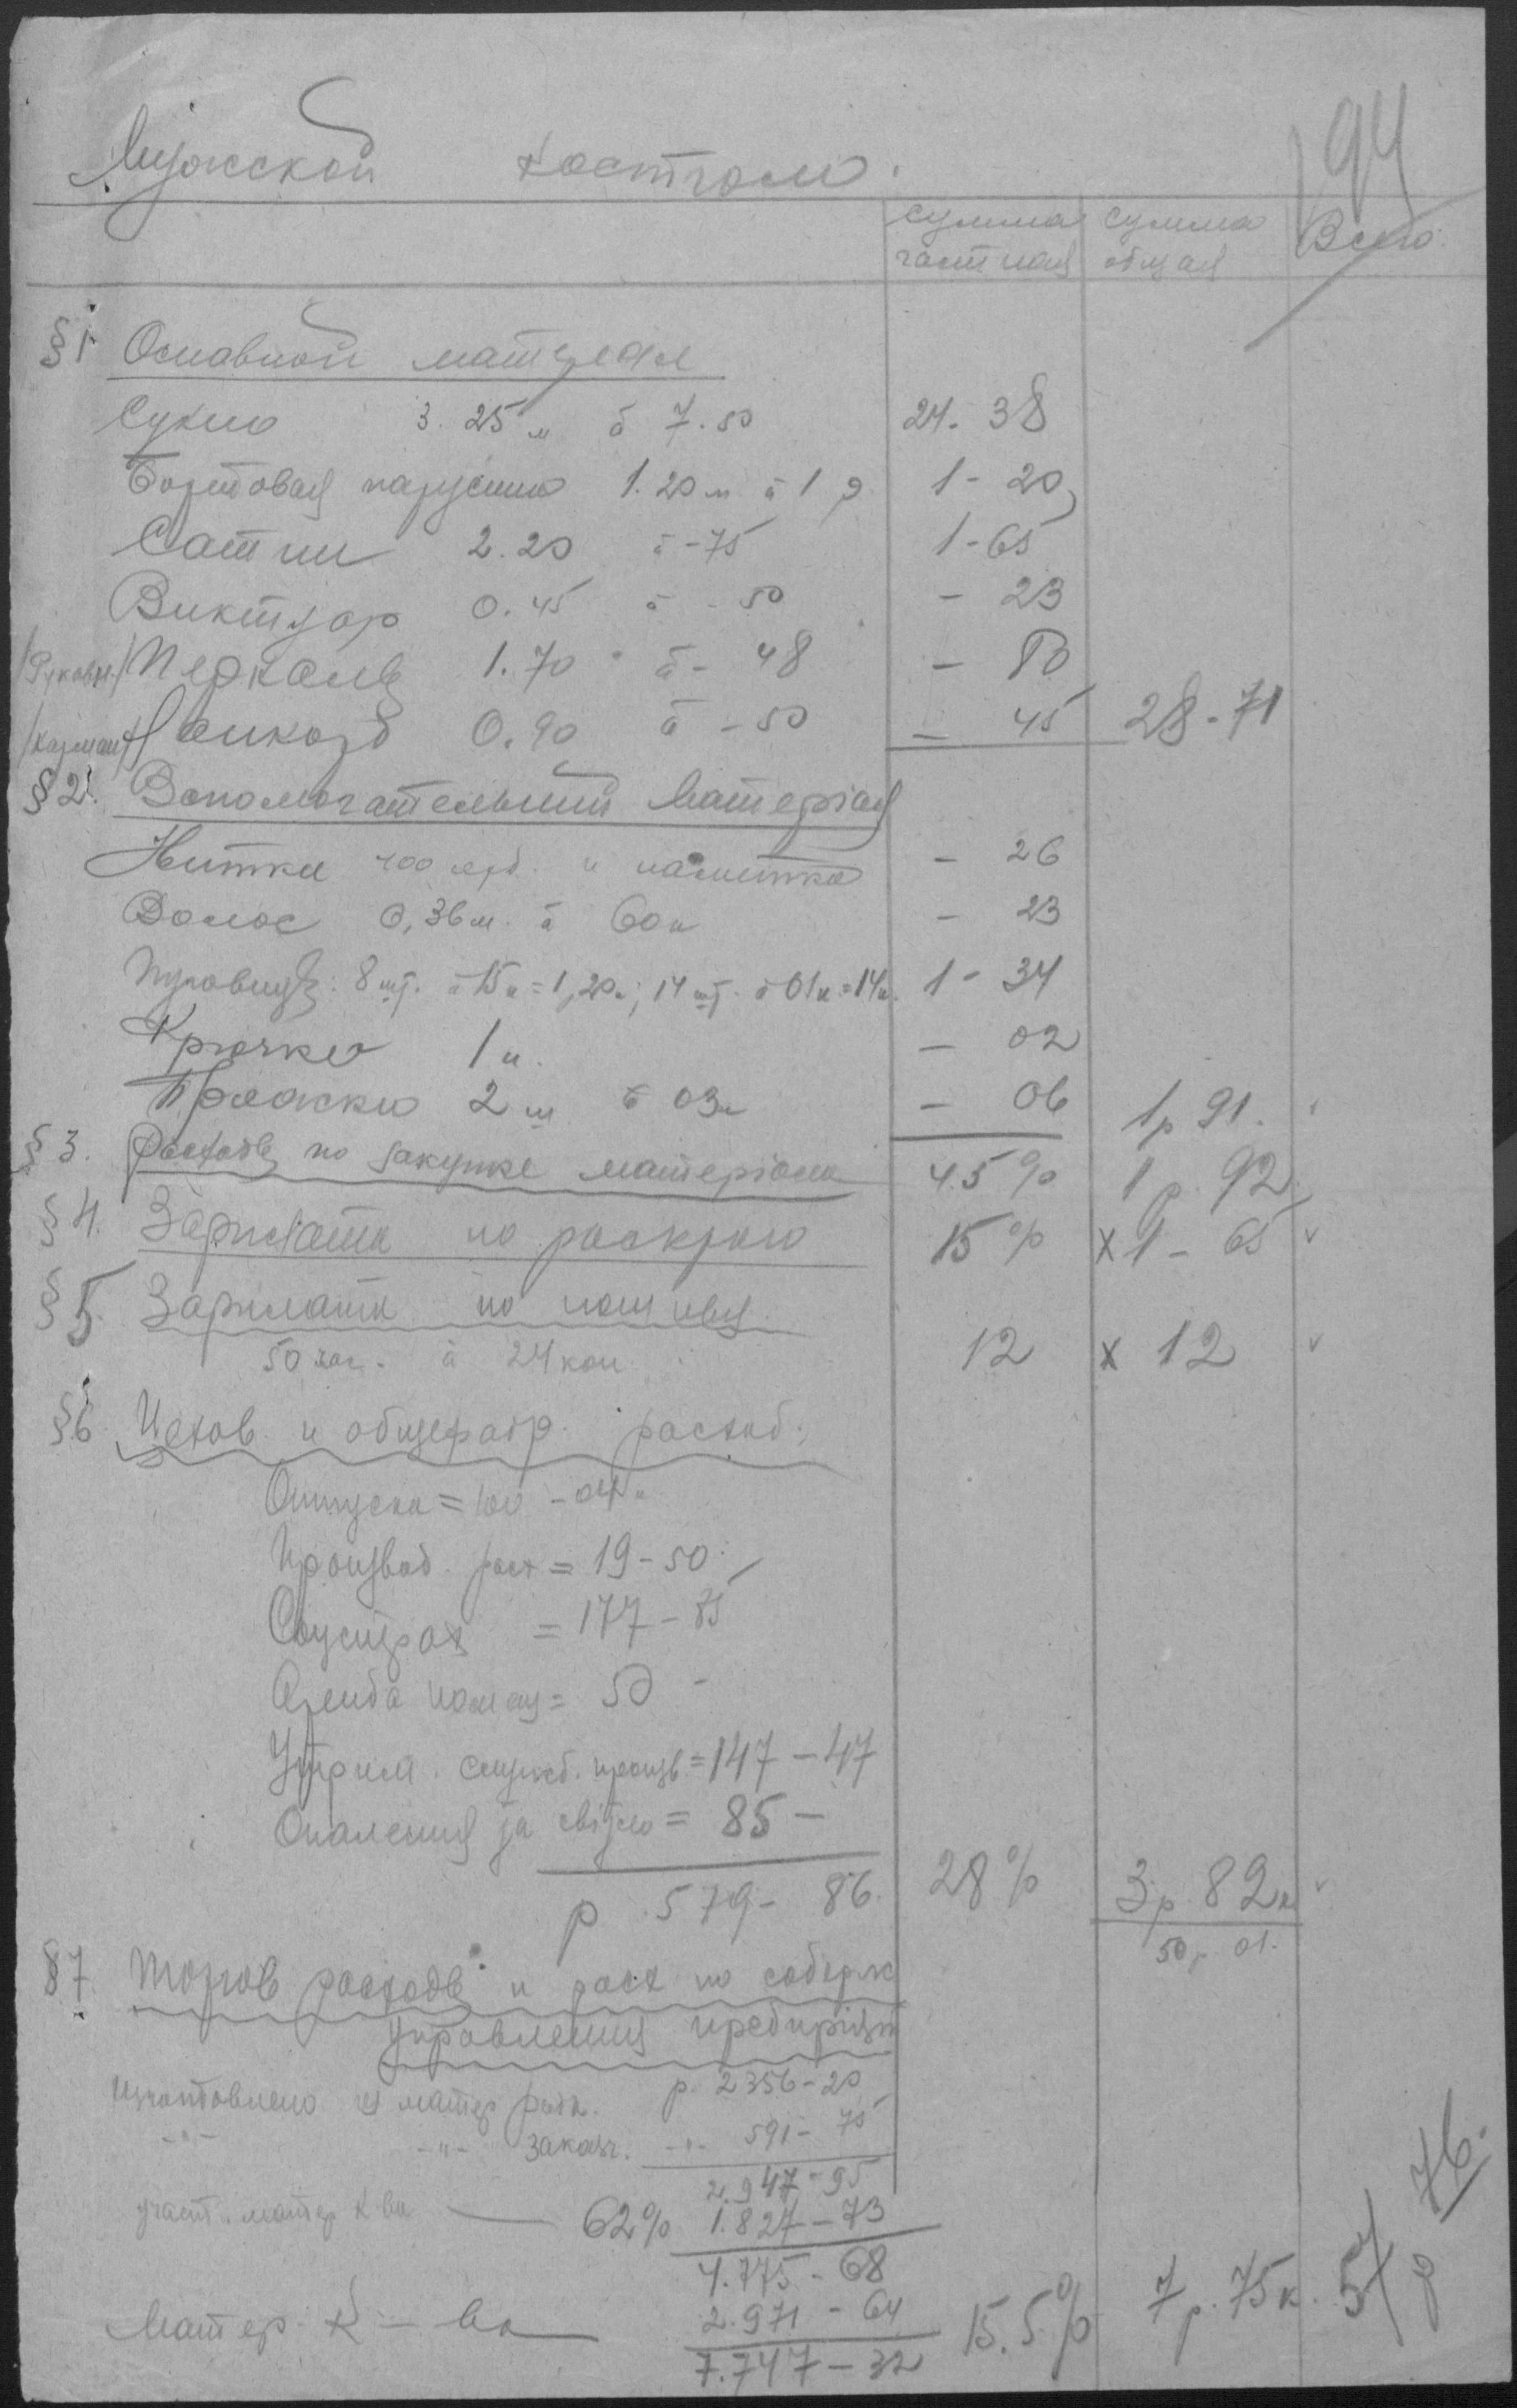 94
Мужской костюм.
Сумма частная Сумма общая Всего
§ 1 Основной материал
Сукно 3.25 м á 7.50 24-38
Бортовая парусина 1.20 м á 1 р 1-20
Сатин 2.20 á -75 1-65
0.45 á -50 -23
/Рукавн./ Перкаль 1.70 á -48 -80
/карман/ 0.90 á -50 -45 28-71
§ 2. Вспомогательный Матерiал
Нитки 400 ярд. и наметка -26
Волос 0,36 м. á 60 к -23
Пуговиц: 8 шт. á 15 к = 1,20 к; 14 шт. á 01 к = 14 к. 1-34
Крючки 1 п. -02
Пряжки 2 ш á 03 к -06 1 р 91.
§ 3. Расходы по закупке матерiала 4.5% 1 р. 92
§ 4. Зарплата по раскрою 15% x 1-65
§ 5. Зарплата по пошивке
50 час. á 24 коп. 12 x 12
§ 6 Цехов. и общефабр. расход.
Отпуска = 100-04
Производ. расх = 19-50
Соцстрах = 177-85
Аренда помещ = 50 -
Утрим. служб. произв. = 147-47
Опаления за свiтло = 85 -
р 579-86. 28% 3 р. 82 к
50 р 01.
§ 7 Торгов расходы и расх по содерж
управления предприят
Изготовлено из матер рын. р. 2356-20
-"- -"- заказч. -"- 591-75
2.947-95
част. матер к ва — 62% 1.827-73
4.775-68
Матер. К - ва — 2.971-64 15.5% 7 р. 75 к. 57 р 76.
7.747-32